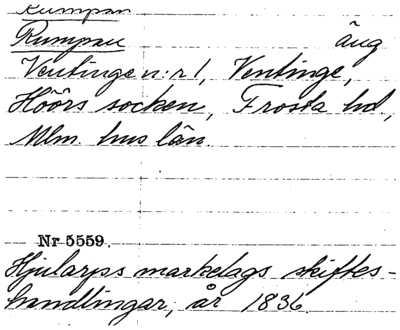 Rumpan
Rumpan äng
Ventinge n:r 1, Ventinge,
Höörs socken, Frosta hd,
Mlm. hus län.
Nr 5559.
Hjularps markelags skiftes-
handlingar, år 1836.